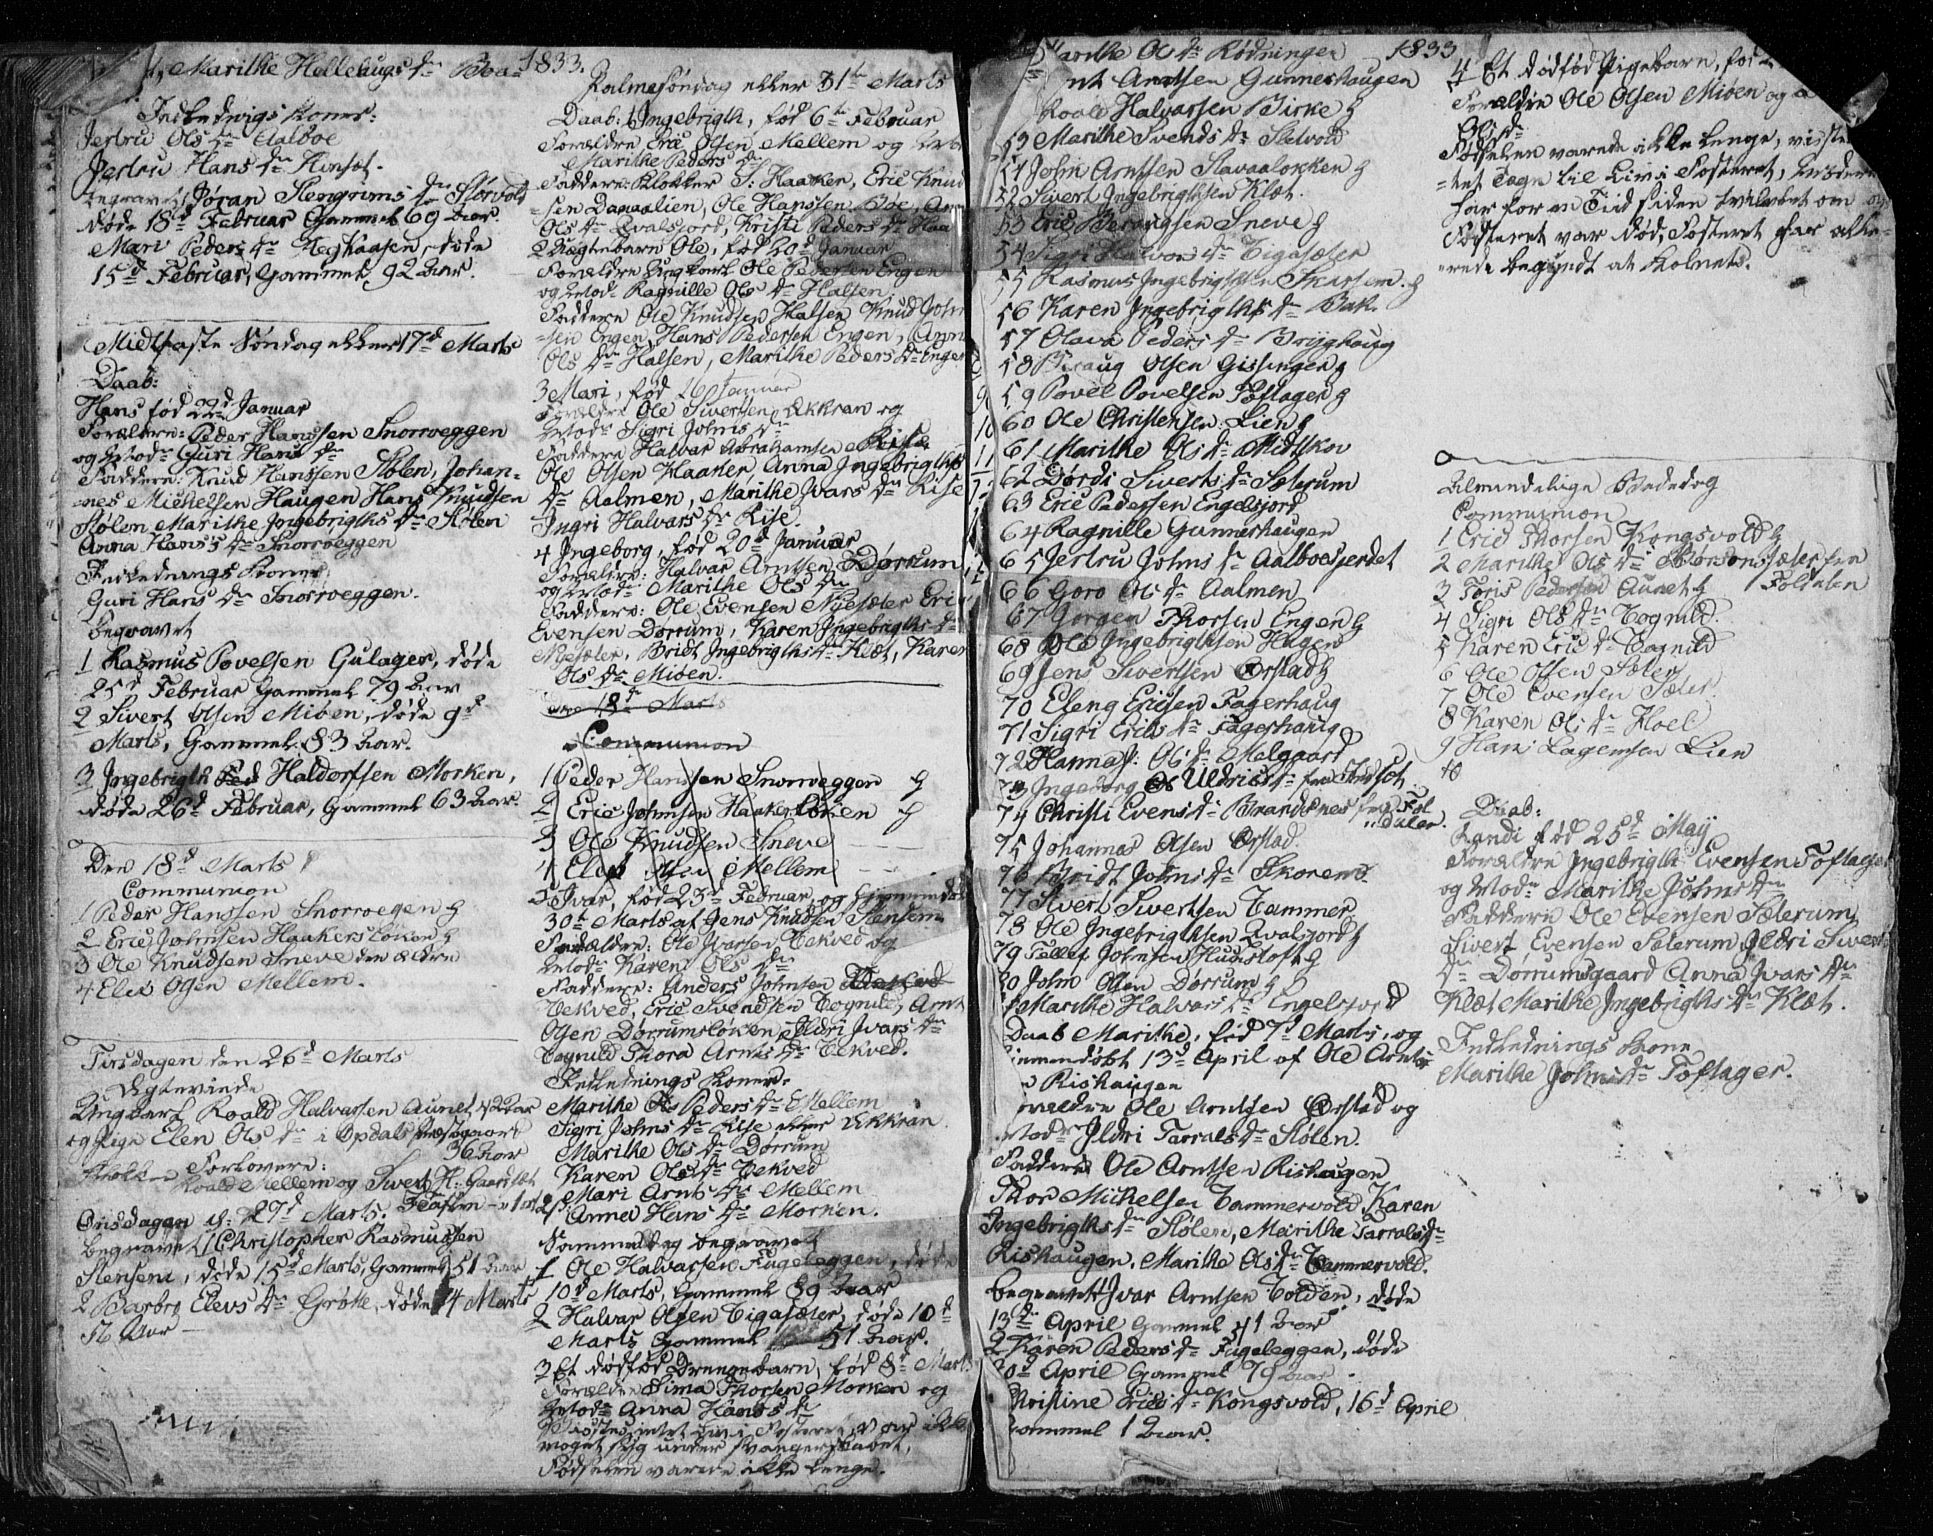 Marithe Hellehugs dr Boe 1833.
Indlednings Koner:
Jertru Ols dr Aalboe
Jertru Hans dr Hinsæt.
begravet Jøran Stengrims dr Størvold
døde 18d Februar Gammel 69 Aar.
Mari Peders dr Heghaasen, døde
15d Februar, Gammel 92 Aar.
Midtfaste Søndag eller 17d Marts
Daab:
Hans fød 22d Januar
Forældre: Peder Hanssen Snorroeggen
og Mod. Guri Hans dr
Faddere: Knud Hanssen Stølen, Johan-
nes Michelsen Haugen Hans Knudsen
Stølen Marithe Ingebrigths dr Stølen
Anna Hans dr Snorroeggen
Indlednings Koner
Guri Hans dr Snorroeggen.
begravet
1 Rasmus Povelsen Gulager, døde
25d Februar Gammel 79 Aar
2 Sivert Olsen Mioen, døde 9d
Marts, Gammel 83 Aar.
3 Ingebrigth Haldorssen Morken,
døde 26d Februar, Gammel 63 Aar.
Den 18d Marts
Communion
1 Peder Hanssen Snorroegen g
2 Eric Johnsen Haakersløken g
3 Ole Knudsen Sneve den Ældre
4 Elev Olsen Mellem.
Tirsdagen den 26d Marts
Ægteviede
Ungkarl Roald Halvorssen Aunet, Aar
og Pige Elen Ols dr i Opdals Præstegaard
36 Aar
Forlovere:
Roald Mellem og Sivert H:
Onsdagen d: 27d Marts.
begravet 1 Christopher Rasmussen
Stensem, døde 15d Marts, Gammel 51 Aar
2 Barbro Elevs dr Grøte, døde 14 Marts
56 Aar
Palmesøndag eller 31te Marts
Daab: 1 Ingebrigth, fød 6te Februar
Forældre Eric Olsen Mellem og
Marithe Peders dr
Faddere: Klokker S: Haaker, Eric Knud
sen Danalien, Ole Hanssen Boe,
Ols dr Qvalsjord, Kristi Peders dr Haa
2 Uægtebarn Ole, fød 20d Januar
Forældre Ungkarl Ole Pedersen Engen
og Mod. Ragnille Ols dr Halsen.
Faddere Ole Knudsen Halsen Knud John
sen Engen, Hans Pedersen Engen,
Ols dr Halsen, Marithe Peders dr Engen
3 Mari, fød 16 Januar
Forældre Ole Sivertsen Ækran og
Mod. Sigri Johns dr
Faddere Halvor Abrahamsen Rise
Ole Olsen Haaker, Anna Ingebrigths
dr Aalmen, Marithe Ivars dr Rise
Ingri Halvors dr Rise.
4 Ingeborg, fød 20d Januar
Forældre: Halvor Arntsen Dørrum
og Mod. Marithe Ols dr
Faddere: Ole Evensen Nyesæter Eric
Evensen Dørrum, Karen Ingebrigths dr
Nyesæter, Bridt Ingebrigths dr Klæt, Karen
Ols dr Mioen.
den 18de Marts
Communion
1 Peder Hanssen Snorroeggen g
2 Eric Johnsen Haakersløken g
3 Ole Knudsen Sneve
4 Elev Olsen Mellem
5 Ivar, fød 23d Februar, og hjemmedøbt
30te Marts af Jens Knudsen Stensem
Forældre: Ole Ivarsen Vekved og
Mod. Karen Ols dr
Faddere: Anders Johnsen Vekved
Vekved, Eric Svendsen Vognild, Arnt
Olsen Dørrumsløken Ildri Ivars dr
Vognild Thora Arnts dr Vekved.
Indlednings Koner.
Marithe Peders dr Mellem
Sigri Johns dr Rise eller Ækran.
Marithe Ols dr Dørrum
Karen Ols dr Vekved
Mari Arnts dr Mellem
Anne Hans dr Morken.
Sammedag begravet
1 Ole Halvorsen Fugeleggen, døde
10d Marts, Gammel 89 Aar
2 Halvor Olsen Vigasæter, døde 10d
Marts Gammel 51 Aar.
3 Et dødfød Drengebarn, fød 8d Marts
Forældre Sima Thorsen Morken og
Mod. Anna Hans dr
meget syg under Svangerskabet,
Fødselen varede ikke længe.
Marithe Ols dr Rødningen 1833
Arntsen Gunneshaugen
Roald Halvorsen Birke g
Marithe Svends dr Stølvold
51 John Arntsen Stavaaløkken g
52 Sivert Ingebrigthsen Klæt.
53 Eric Berentsen Sneve g
54 Sigri Halvors dr Vigasæter
55 Rasmus Ingebrigthsen Skarsem. g
56 Karen Ingebrigths dr Bak.
57 Olava Peders dr Brygghaug
58 Beraug Olsen Gissingen g
59 Povel Povelsen Toftager g
60 Ole Christensen Lien g
61 Marithe Ols dr Midtskov
62 Dørdi Siverts dr Sæterum
63 Eric Pedersen Engelsjord
64 Ragnille Gunneshaugen
65 Jertru Johns dr Aalboesjerdet
66 Goro Ols dr Aalmen
67 Jørgen Thorsen Engen g
68 Ole Ingebrigthsen Hagen
69 Jens Sivertsen Ørstad g
70 Eleng Ericsen Fagerhaug
71 Sigri Erics dr Fagerhaug
72 Hanna J: Ols dr Melgaard
73 Ingeborg Uldrics dr fra Indset
74 Christi Evens dr Brandsnes fra Fol
dalen.
75 Johannes Olsen Ørstad.
76 Astridt Johns dr Skorem.
77 Sivert Sivertsen Vammer
78 Ole Ingebrigthsen Qvalsjord g
79 Tellef Johnsen Huusløft g
80 John Olsen Dørrum g
Marithe Halvors dr Engelsjord
Daab Marithe, fød 7d Marts, og
hiemmedøbt 13d April af Ole Arntsen
Rishaugen
Forældre Ole Arntsen Ørstad og
Mod. Ildri Tarrals dr Stølen.
Faddere Ole Arntsen Rishaugen
Thor Michelsen Vammervold Karen
Ingebrigths dr Stølen, Marithe Tarrals dr
Rishaugen, Marithe Ols dr Vammervold.
Begravet Ivar Arntsen Volden, døde
13d April Gammel 41 Aar
2 Karen Peders dr Fugeleggen, døde
April Gammel 78 Aar.
Christine Erics dr Kongsvold, 16d April
Gammel 1 Aar.
4 Et dødfød Pigebarn, fød
Forældre Ole Olsen Mioen og
Ols dr
Fødselen varede ikke længe, viste
intet Tegn til Liv i Fosteret, Moderen
har for en Tid siden tvivlet om
Fosteret var død, Fosteret har alle-
rede begyndt at kolnets.
Almindelige Bededag
Communion
1 Eric Thorsen Kongsvold g
2 Marithe Ols dr Børsonsæter fra
Foldalen
3 Joris Pedersen Aunet g
4 Sigri Ols dr Vognild.
5 Karen Eric dr Vognild
6 Ole Olsen Sæter
7 Ole Evensen Sæter.
8 Karen Ols dr Hoel
9 Hans Lagemsen Lien
10
Daab:
Randi fød 25d May
Forældre Ingebrigth Evensen Toftager
og Mod. Marithe Johns dr
Faddere Ole Evensen Sæterum
Sivert Evensen Sæterum Ildri Siverts
dr Dørrumsgaard Anna Ivars dr
Klæt Marithe Ingebrigths dr Klæt.
Indlednings Kone
Marithe Johns dr Toftager.